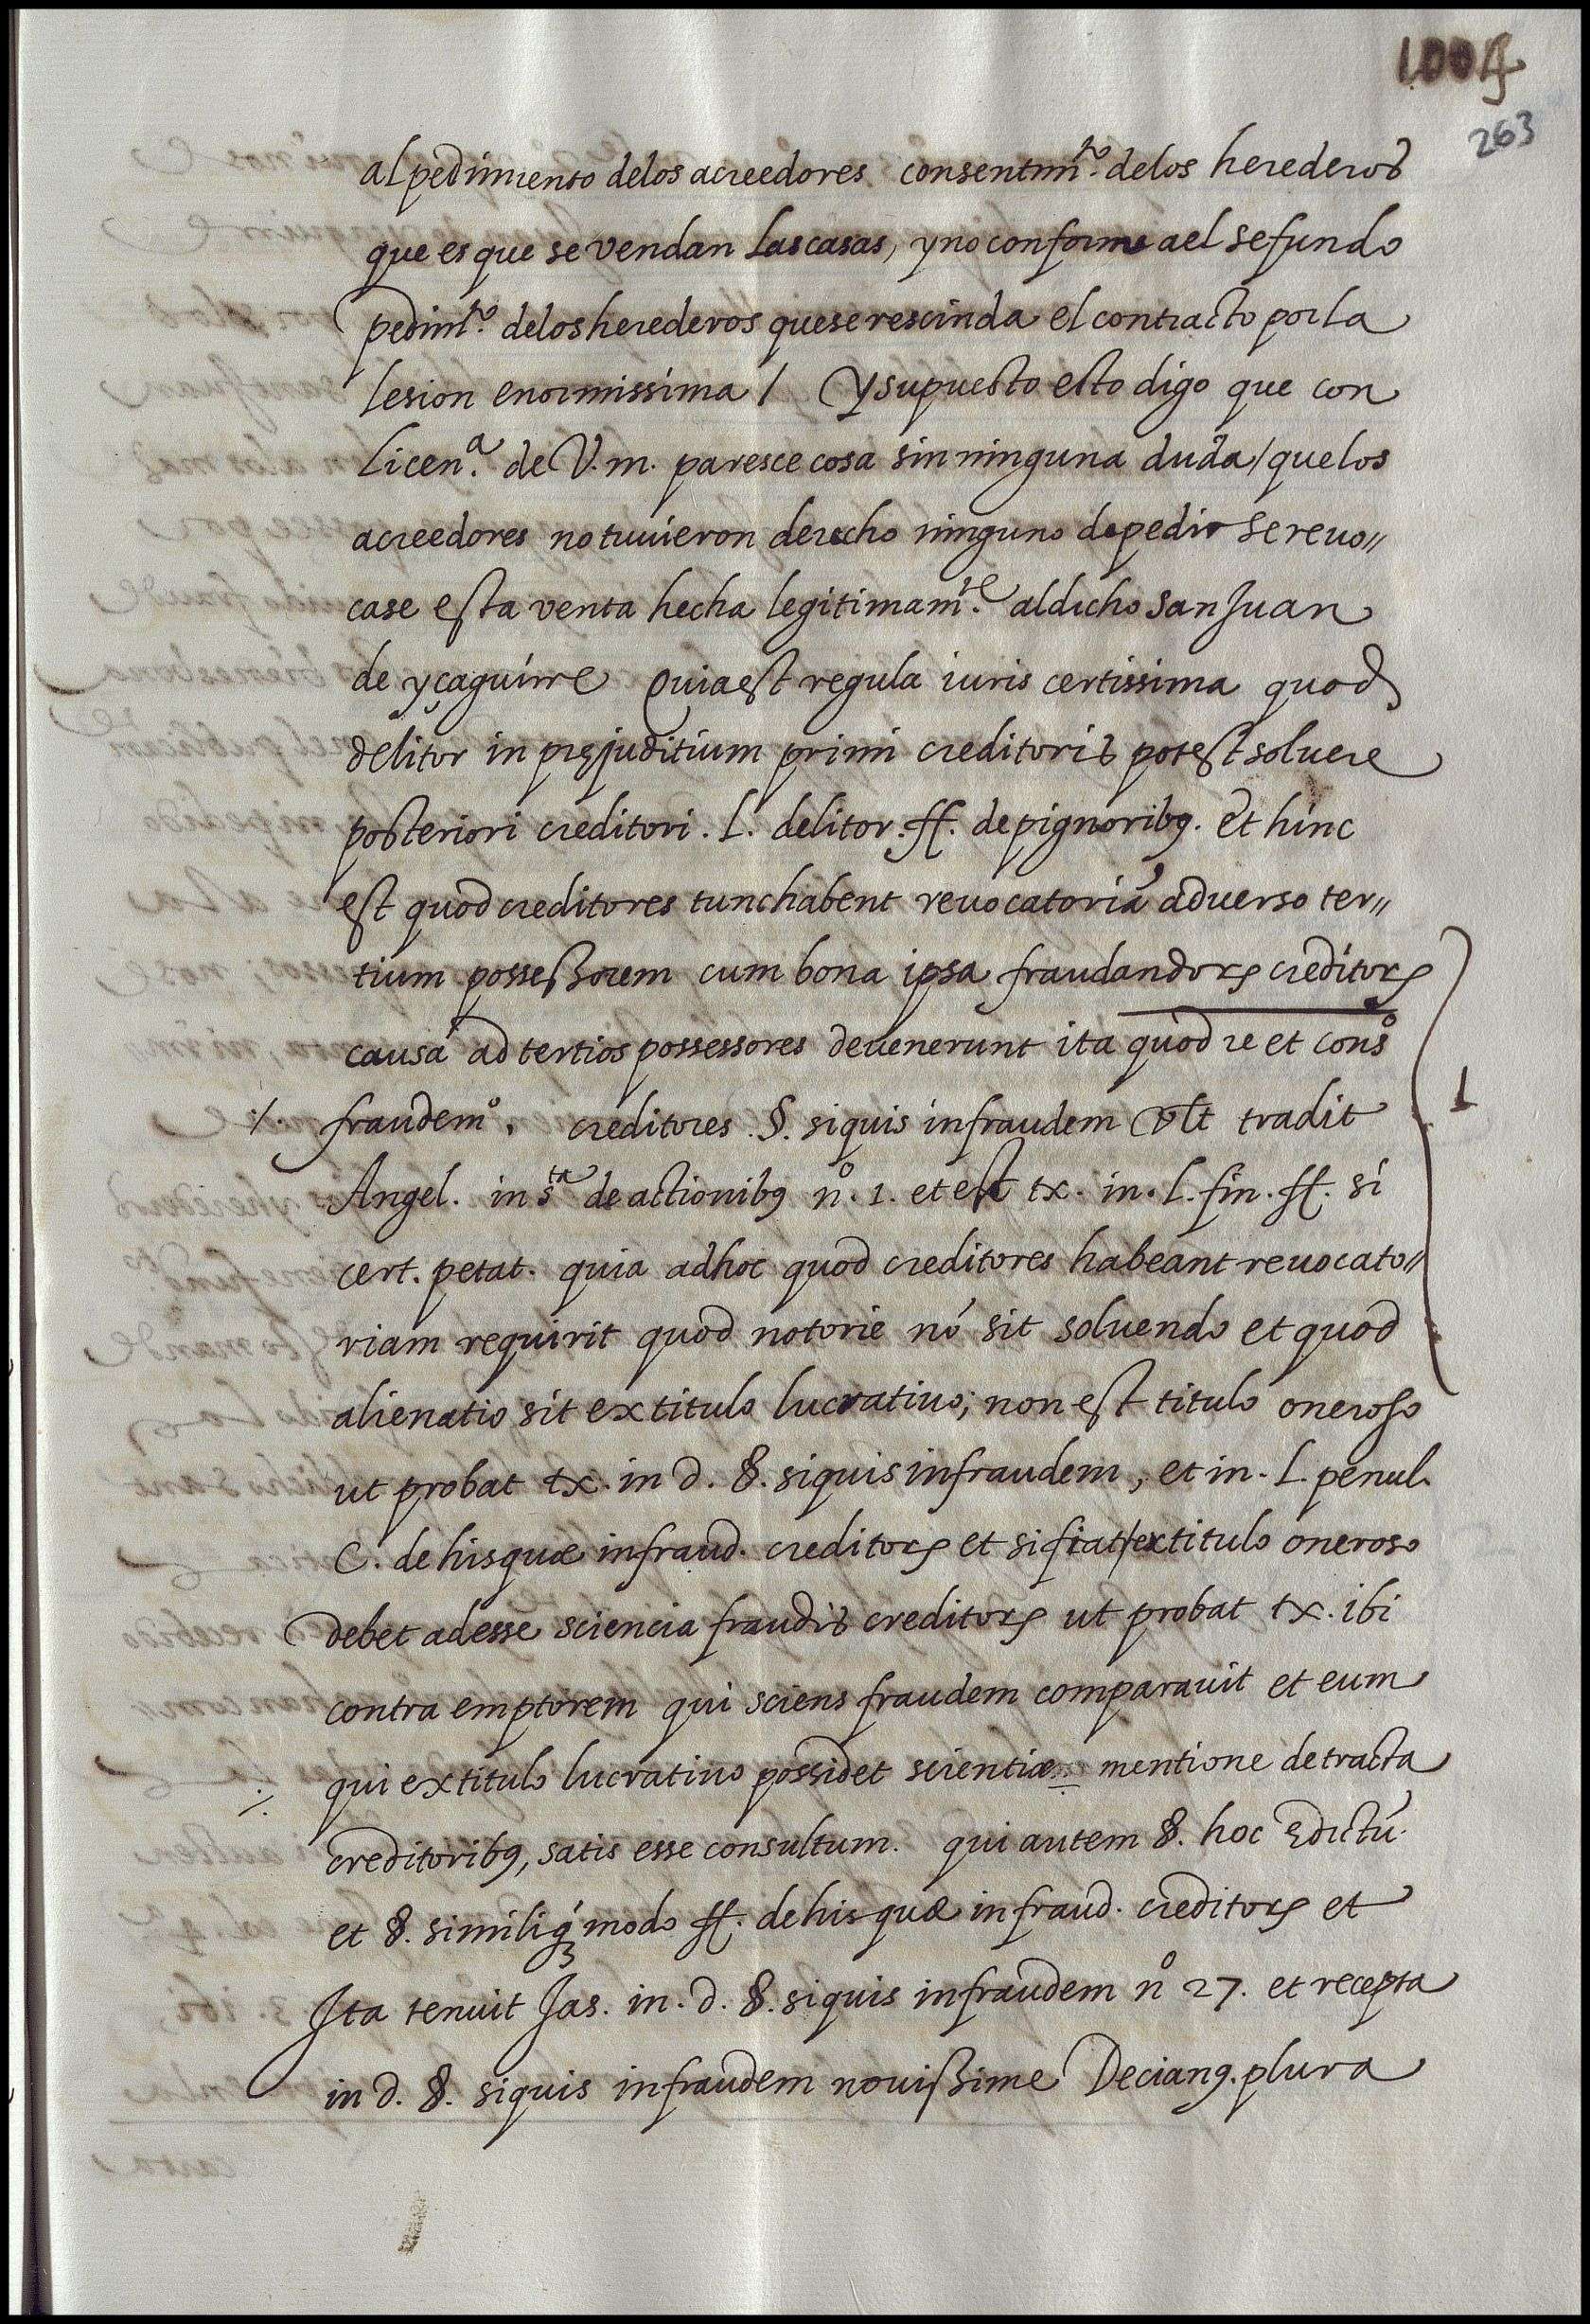 1004
263
al pedimiento delos acreedores consentim.to delos herederos
que es que se vendan las casas, y no conforme a el sefundo
pedim.to delos herederos que se rescinda el contracto por la
lesion enormissima / Y supuesto esto digo que con
Licen.a de V.m. paresce cosa sin ninguna duda / que los
acreedores no tuuieron derecho ninguno de pedir se reuo//
case esta venta hecha legitimam.te al dicho San Juan
de yçaguirre Quia est regula iuris certissima quod
delitor in pręjuditium primi creditoris potest soluere
posteriori creditori. L. delitor. ff. de pignorib9. Et hinc
est quod creditores tunc habent reuocatoriā aduerso ter//
tium possessorem cum bona ipsa fraudandorꝝ creditorꝝ
causā ad tertios possessores deuenerunt ita quod re et consº
./. fraudemº. creditores §. siquis in fraudem vlt tradit
Angel. in sta de actionib9 nº. 1. et est tx. in. L. fin. ff. si
cert. petat. quia ad hoc quod creditores habeant reuocato//
riam requirit quod notorie nō sit soluendo et quod
alienatio sit ex titulo lucratiuo; non est titulo oneroso
ut probat tx. in d. §. siquis in fraudem, et in. L. penul.
C. de his quæ in fraud. creditorꝝ et si fiat / ex titulo oneroso
debet adesse sciencia fraudis creditorꝝ ut probat tx. ibi
contra emptorem qui sciens fraudem comparauit et eum
./. qui ex titulo lucratiuo possidet scientiæ mentione detracta
creditorib9, satis esse consultum. qui autem §. hoc Edictū.
et §. similiqꝫ modo ff. de his quæ in fraud. creditorꝝ et
Ita tenuit Jas. in. d. §. siquis in fraudem nº 27. et recepta
in d. §. siquis in fraudem nouissime Decian9. plura